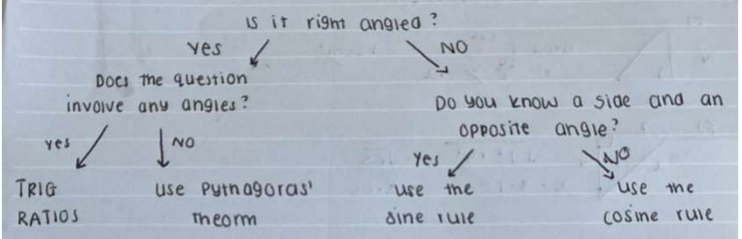 is it right angled?
yes
NO
Does the question
involve any angles?
Do you know a side and an
opposite angle?
yes
NO
Yes
NO
TRIG
RATIOS
use Pythagoras'
theorm
use the
sine rule
use the
cosine rule